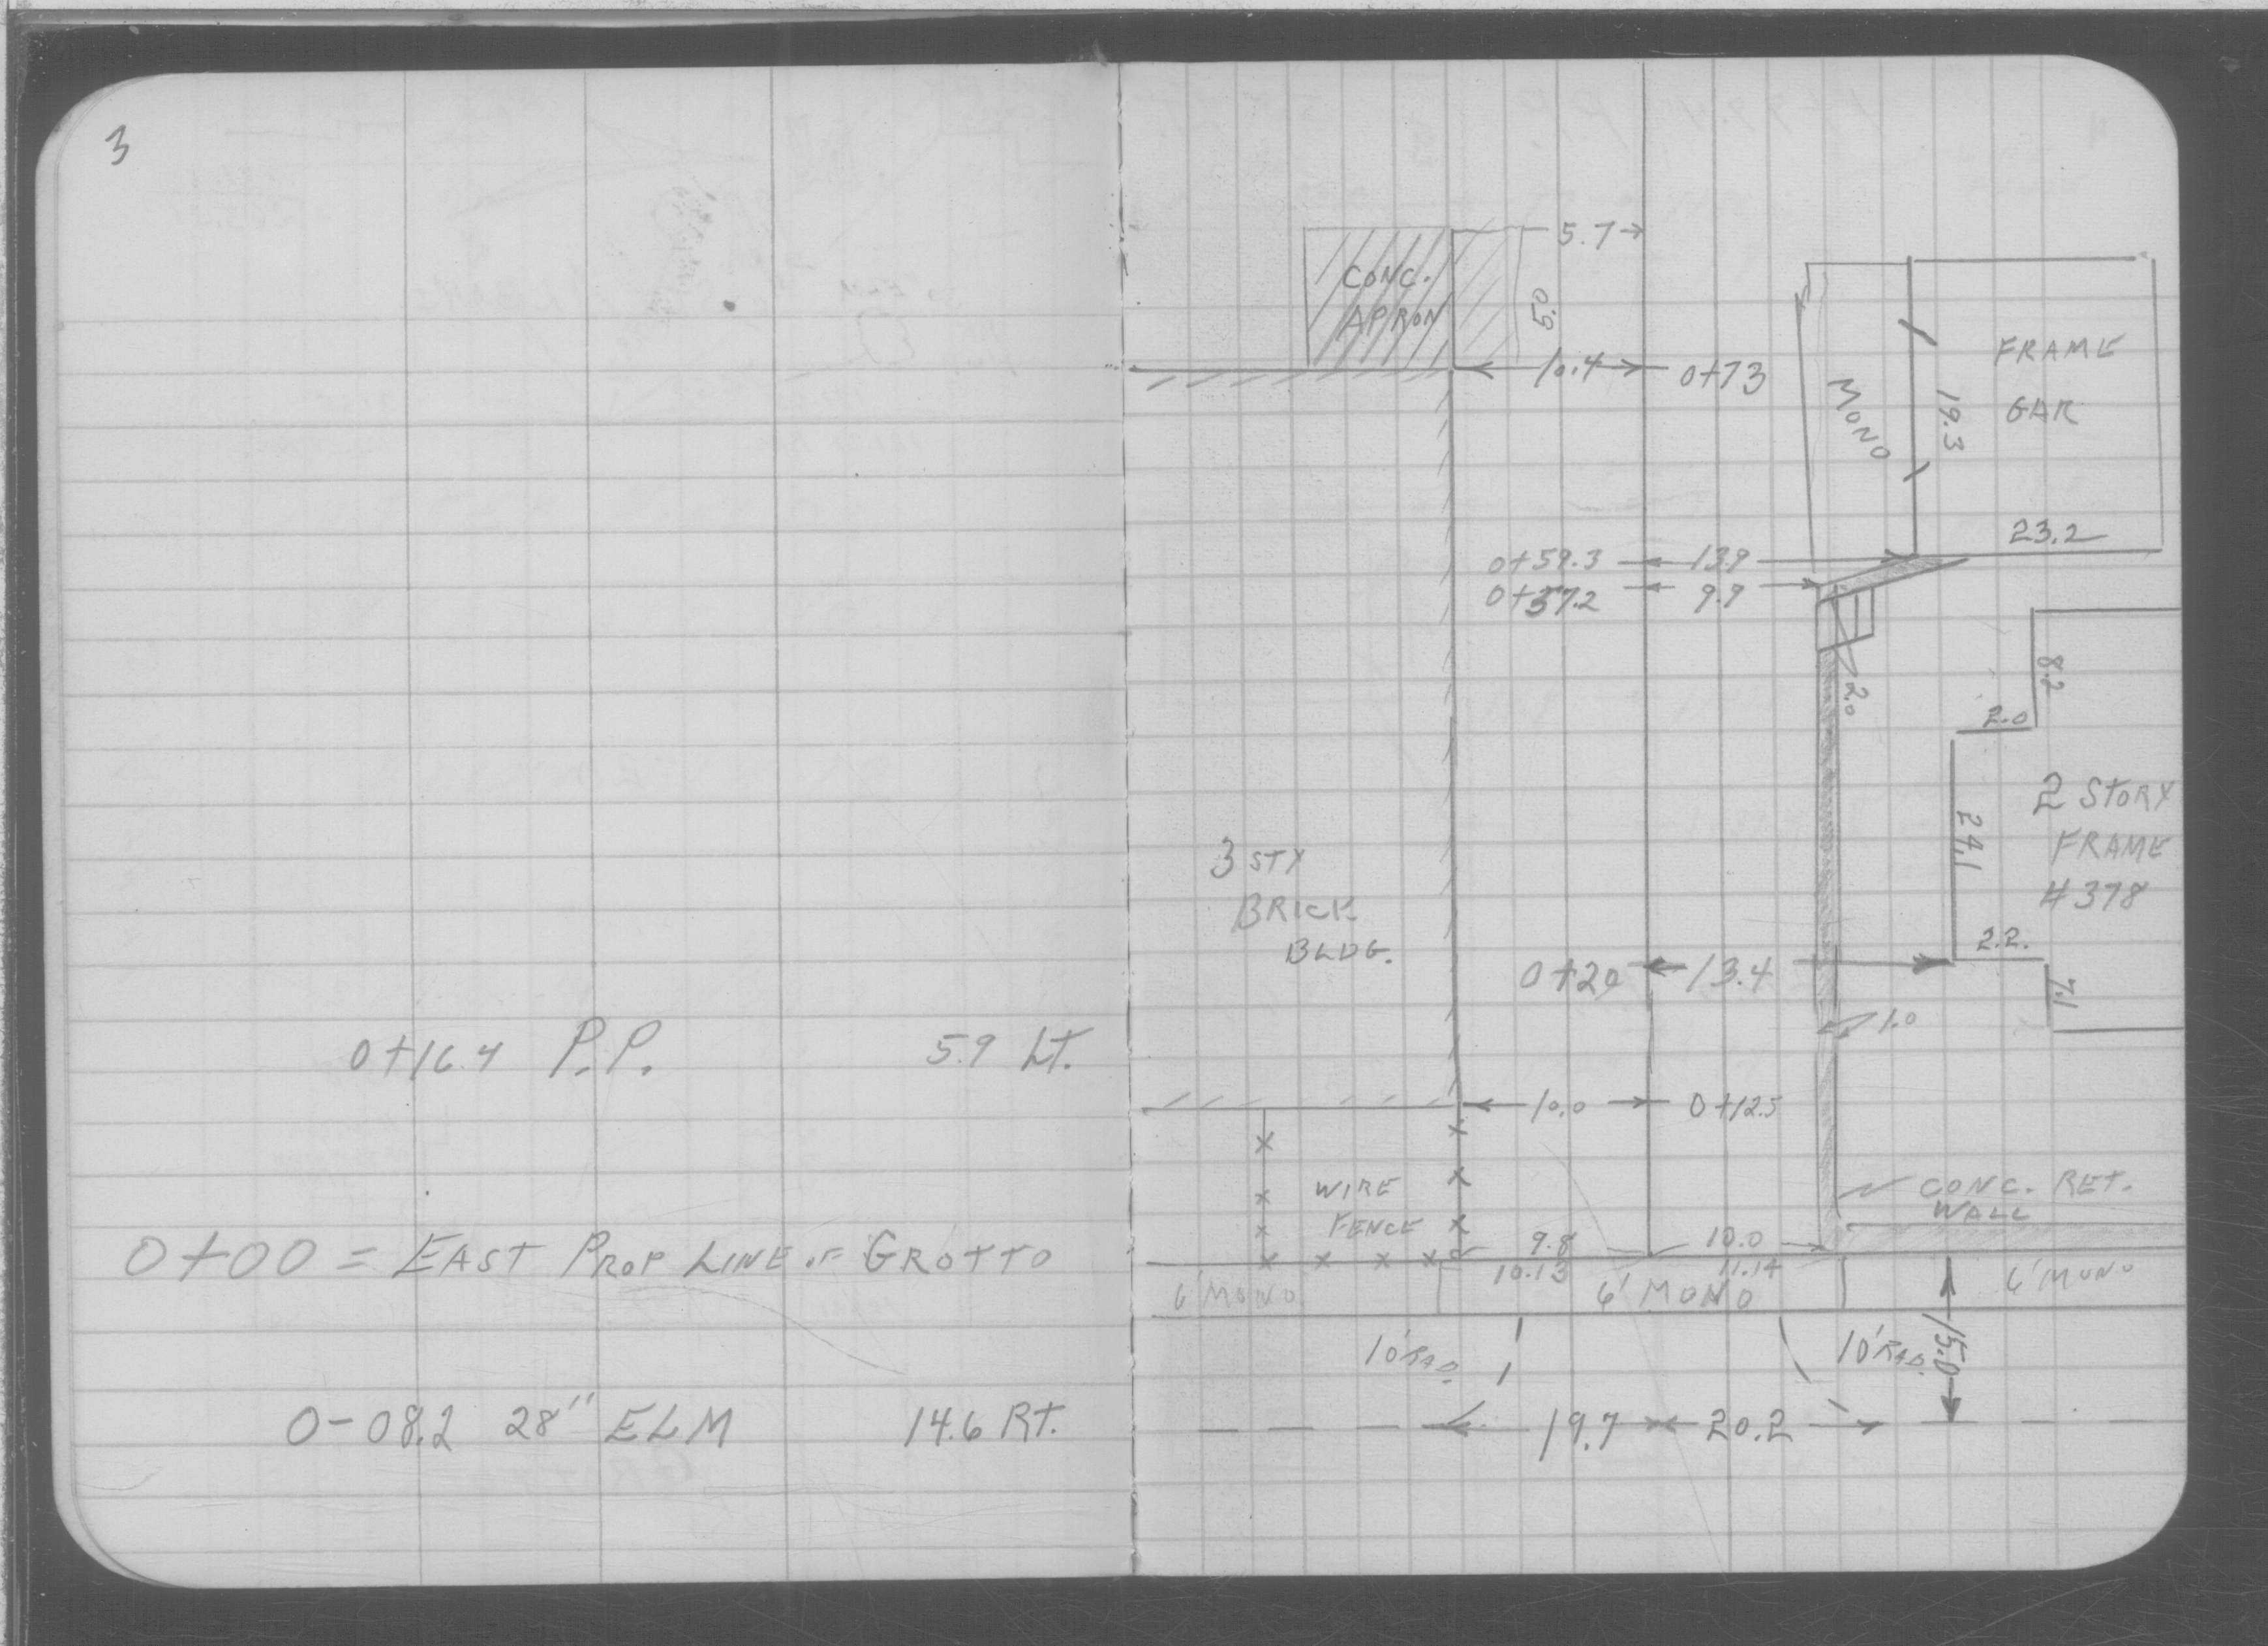 3
0+16.4 P.P. 5.9 LT.
0+00 = EAST PROP LINE OF GROTTO
0-08.2 28" ELM 14.6 RT.
5.7
CONC.
APRON
10.4 0+73
FRAME
GAR
MONO
19.3
23.2
0+59.3 13.9
0+57.2 9.9
8.2
2.0
2.0
2 STORY
FRAME
#378
24.1
3 STY
BRICK
BLDG.
2.2
0+20 13.4
7.1
1.0
10.0 0+12.5
WIRE
FENCE
CONC. RET.
WALL
9.8 10.0
10.13 11.14
6' MONO 6' MONO 6' MONO
10' RAD. 10' RAD.
15.0
19.7 20.2